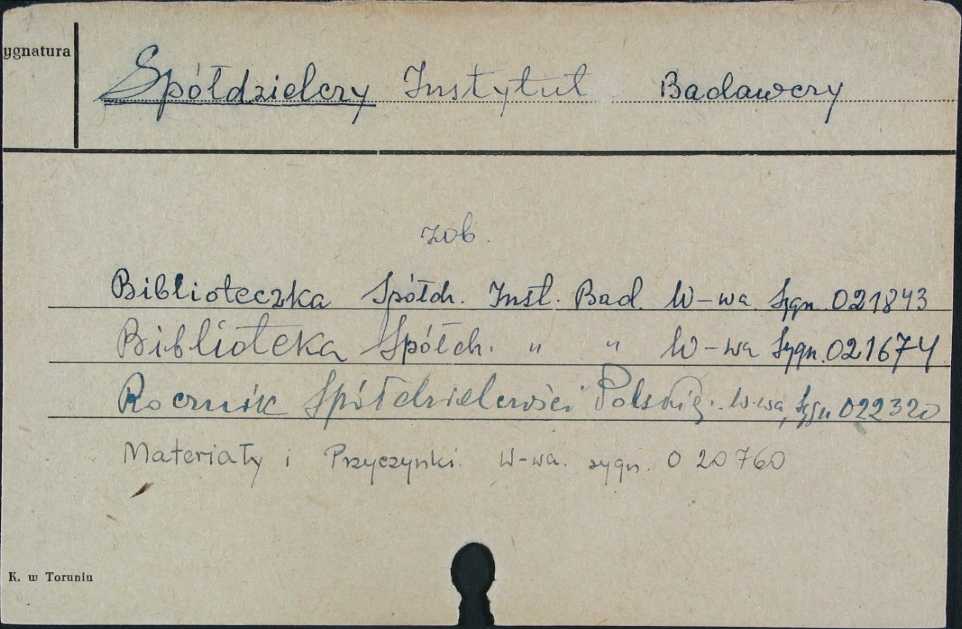 ygnatura
Spółdzielczy Instytut Badawczy
zob.
Biblioteczka Spółdz. Inst. Bad. W-wa Sygn. 021843
Biblioteka Spółdz. " " W-wa Sygn. 021674
Rocznik Spółdzielczości Polskiej. W-wa, Sygn 022320
Materiały i Przyczynki. W-wa. sygn. 020760
K. w Toruniu